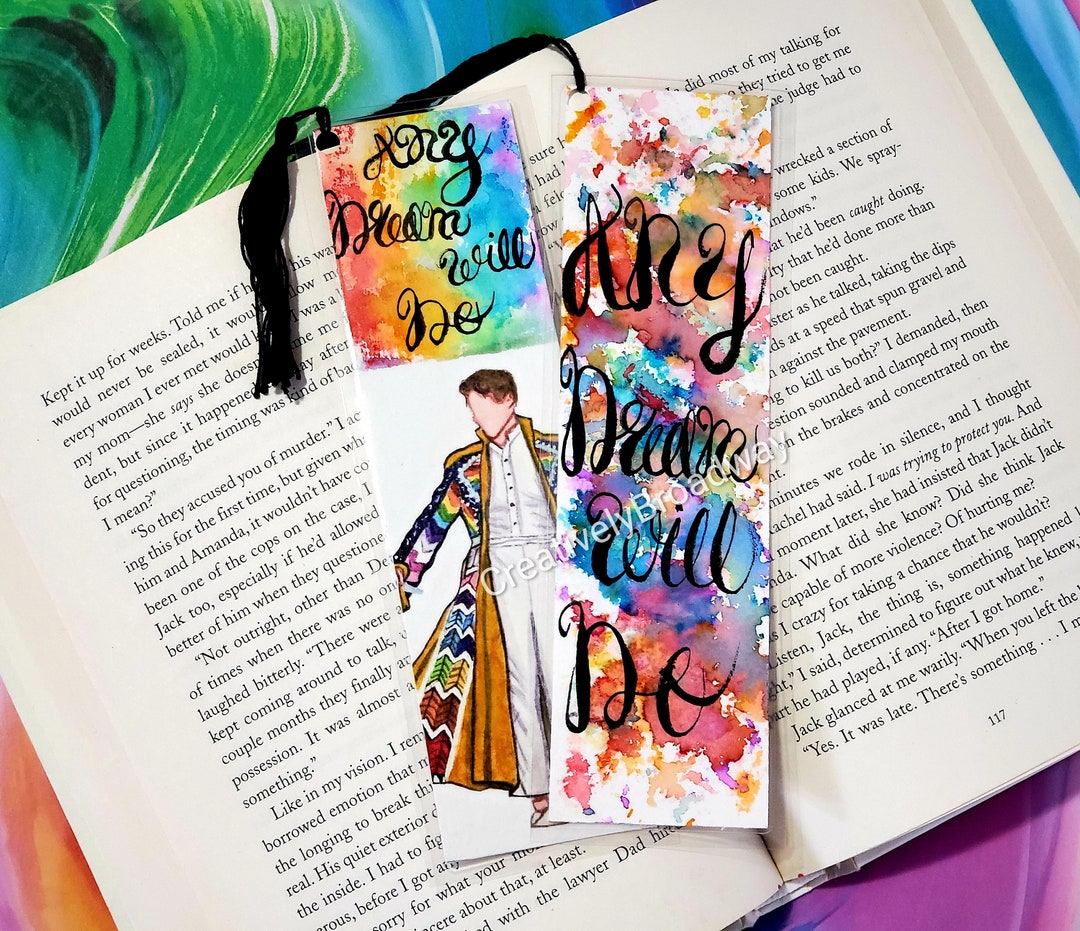 Any
Dream
Will
Do
Any
Dream
Will
Do
CreativelyBroadway
Kept it up for weeks. Told me if h
would never be sealed, it woul
every woman I ever met would
my mom—she says she doesn
dent, but since it happened
for questioning, the timing was kind of ba
I mean?”
“So they accused you of murder.” I ac
ing this for the first time, but given wha
him and Amanda, it wouldn’t have co
been one of the cops on the case, I
Jack too, especially if he’d allowed
better of him when they questione
“Not outright, other than De
of times when there was no on
laughed bitterly. “There were a
kept coming around to talk, w
couple months they finally a
possession. It was almost a
something.”
Like in my vision. I ren
borrowed emotion that n
the longing to break thi
real. His quiet exterior
the inside. I had to fig
erous, before I got any
sorry for what your mo
incere about that, at least.
d with the lawyer Dad hire
did most of my talking for
they tried to get me
he judge had to
wrecked a section of
some kids. We spray-
ndows.”
at he’d been caught doing.
ity that he’d done more than
not been caught.
ster as he talked, taking the dips
ds at a speed that spun gravel and
against the pavement.
g to kill us both?” I demanded, then
estion sounded and clamped my mouth
n the brakes and concentrated on the
minutes we rode in silence, and I thought
Rachel had said. I was trying to protect you. And
moment later, she had insisted that Jack didn’t
nda. What did she know? Did she think Jack
e capable of more violence? Of hurting me?
s I crazy for taking a chance that he wouldn’t?
Listen, Jack, the thing is, something happened l
ght,” I said, determined to figure out what he knew,
art he had played, if any. “After I got home.”
Jack glanced at me warily. “When you left the
“Yes. It was late. There’s something . . . I m
117